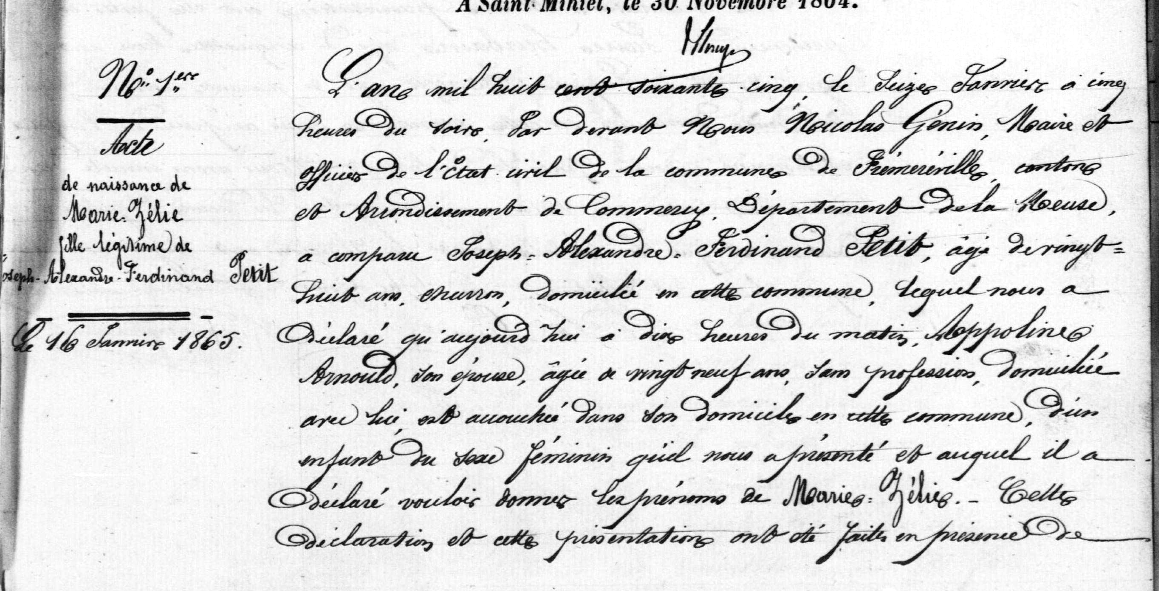 A Saint-Mihiel, le 30 Novembre 1864.
N.o 1.er
Acte
de naissance de
Marie-Zélie
fille légitime de
Joseph-Alexandre-Ferdinand Petit
Le 16 Janvier 1865.
L'an mil huit cent soixante cinq, le seize Janvier à cinq
heures du soir, Par devant Nous Nicolas Génin, Maire et
officier de l'Etat civil de la commune de Frémeréville, canton
et Arrondissement de Commercy, Département de la Meuse,
a comparu Joseph-Alexandre-Ferdinand Petit, âgé de vingt=
huit ans, charron, domicilié en cette commune, lequel nous a
Déclaré qu'aujourd'hui à dix heures du matin, Appoline
Arnould, son épouse, âgée de vingt neuf ans, sans profession, domiciliée
avec lui, est accouchée dans son domicile en cette commune, d'un
enfant du sexe féminin qu'il nous a présenté et auquel il a
Déclaré vouloir donner les prénoms de Marie=Zélie. - Cette
déclaration et cette présentation ont été faites en présence de